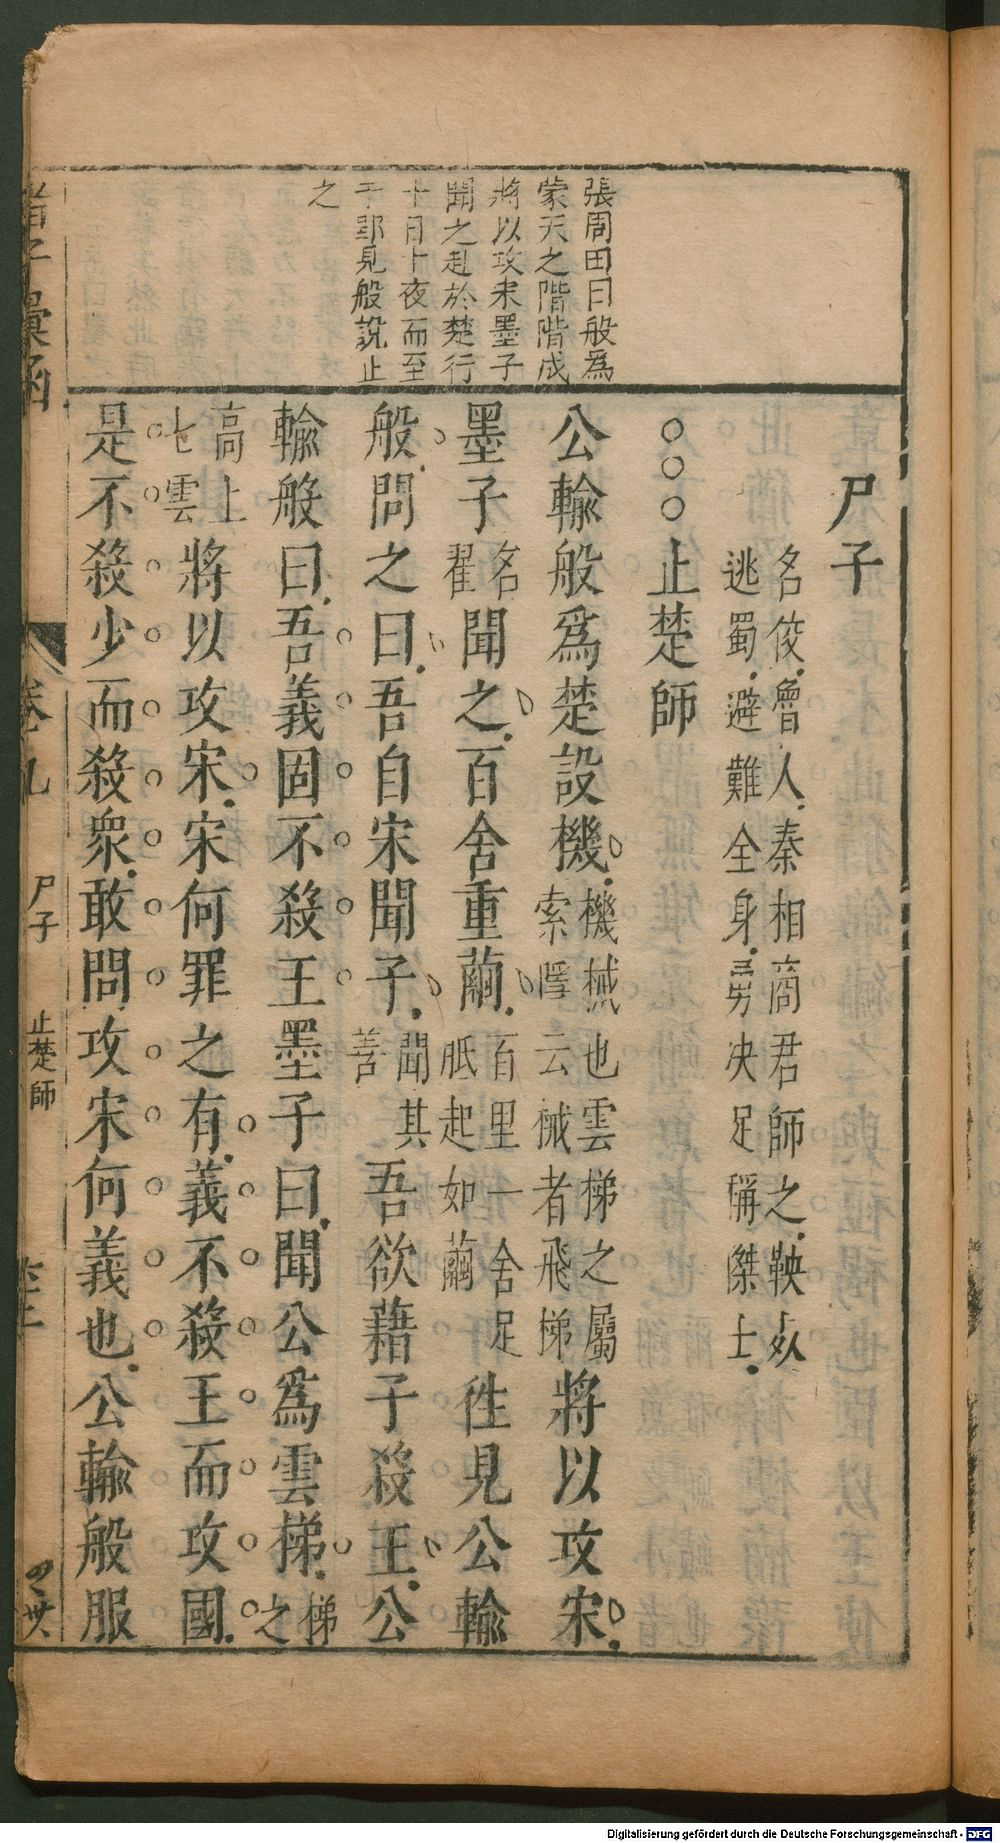 張周田曰般爲
蒙天之階階成
將以攻宋墨子
聞之赴於楚行
十日十夜而至
于郢見般說止
之
尸子
名俊魯人秦相商君師之鞅死
逃蜀避難全身勇决足稱傑士
○○○止楚師
公輸般爲楚設機機械也雲梯之屬索隱云械者飛梯將以攻宋
墨子名翟聞之百舍重繭百里一舍足胝起如繭徃見公輸
般問之曰吾自宋聞子聞其善吾欲藉子殺王公
輸般曰吾義固不殺王墨子曰聞公爲雲梯梯之
高上七雲將以攻宋宋何罪之有義不殺王而攻國
是不殺少而殺衆敢問攻宋何義也公輸般服
諸子彙函
卷九
尸子
止楚師
Digitalisierung gefördert durch die Deutsche Forschungsgemeinschaft - DFG